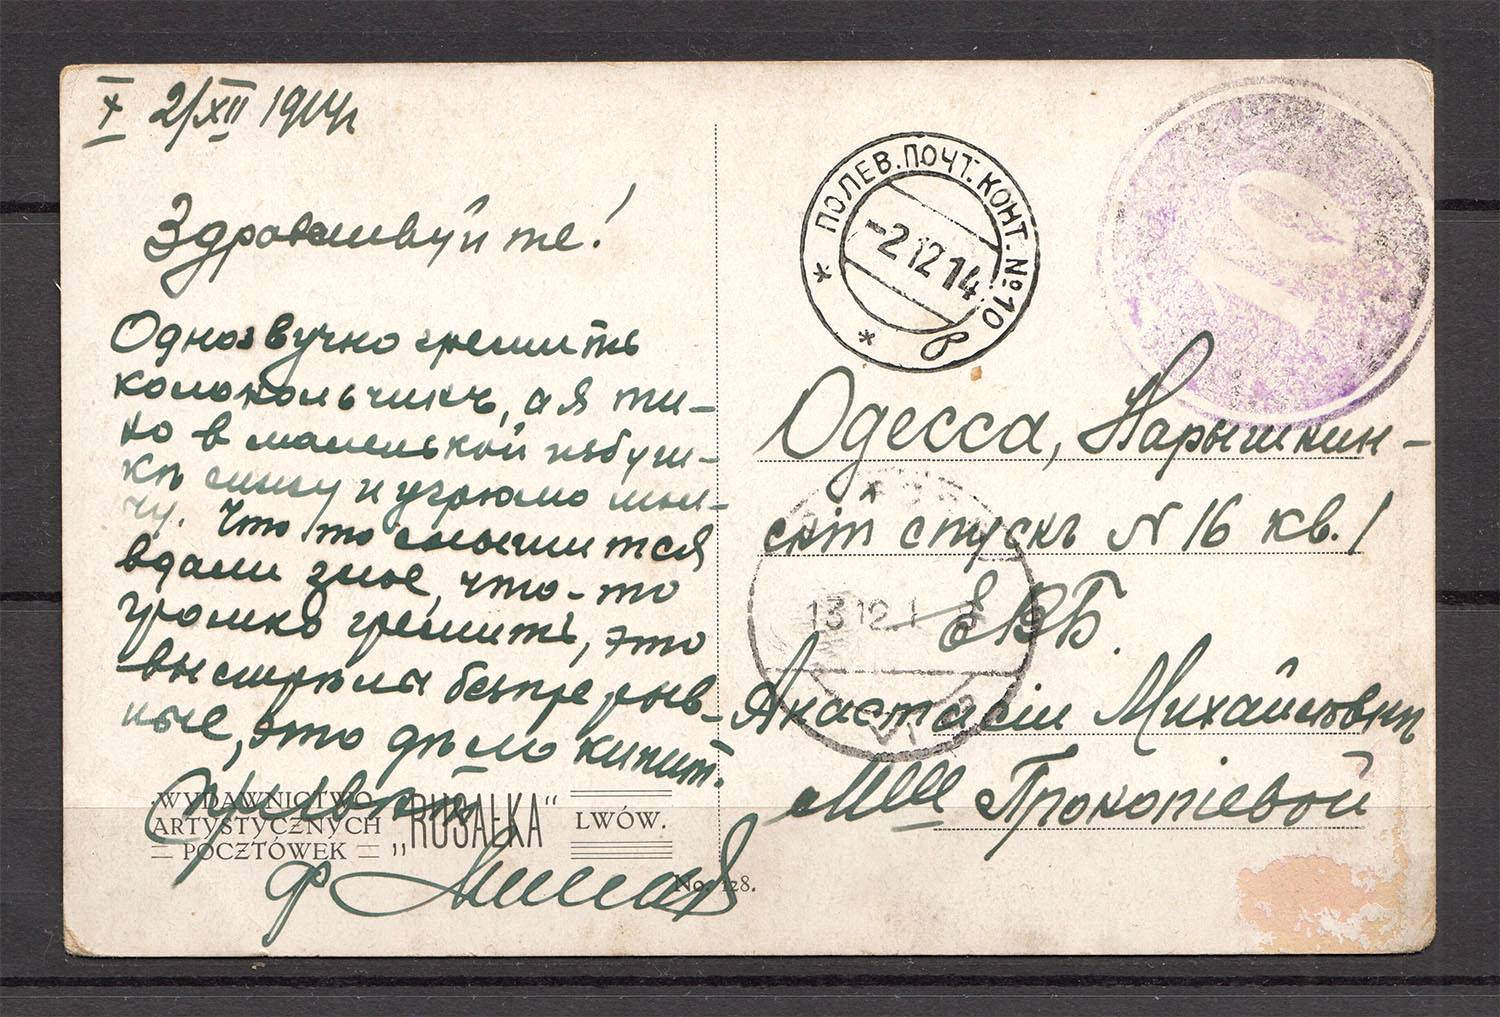 X 2/XII 1914 г
Здравствуйте!
Однозвучно гремитъ
колокольчикъ, а я ти-
хо в маленькой избуш-
кѣ сижу и угрюмо мол-
чу. Что то слышится
вдали злое, что-то
громко гремитъ, это
выстрѣлы безпрерыв-
ные, это дѣло кипит.
Привѣт
WYDAWNICTWO
ARTYSTYCZNYCH
POCZTÓWEK
„RUSAŁKA“
LWÓW.
No. 128.
ПОЛЕВ. ПОЧТ. КОНТ. № 10
-2 12 14
в
10
Одесса, Нарышкин-
скій спускъ N 16 кв. 1
ЕВБ.
13 12 1
Анастасіи Михайловнѣ
Mlle Прокопіевой